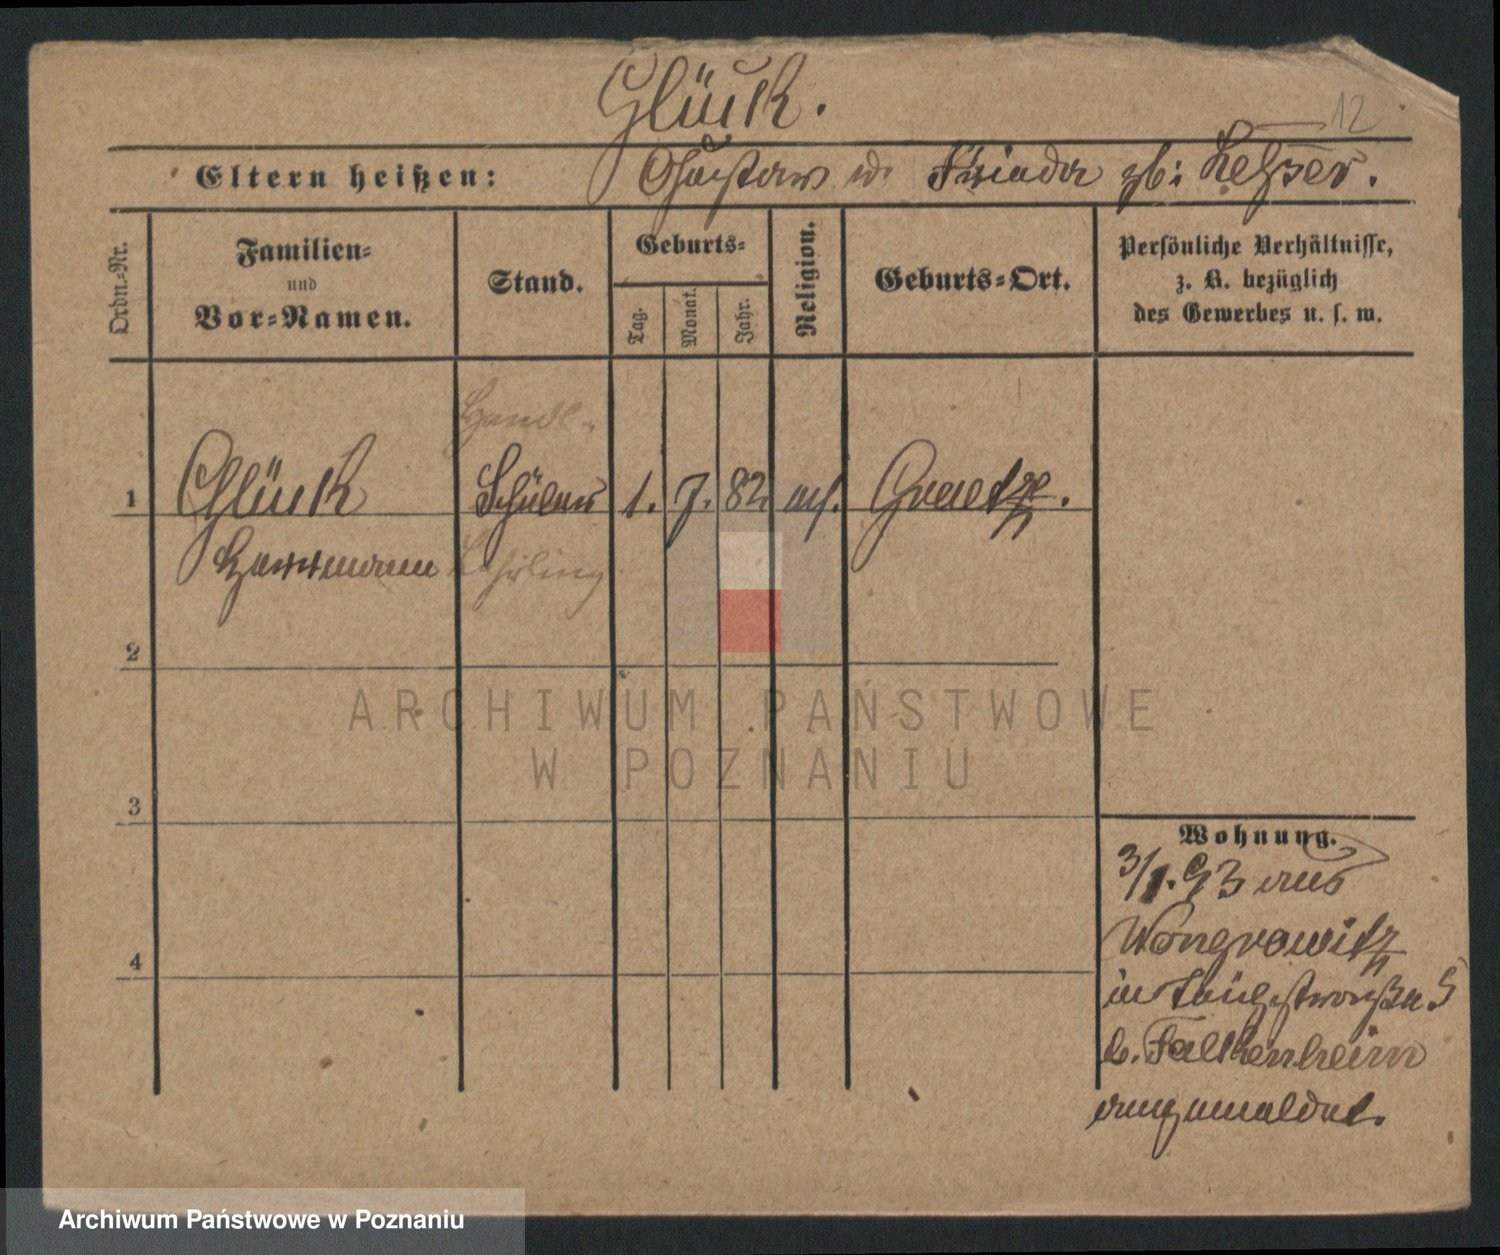 Glück.
12
Eltern heißen: Gustav u. Frieda gb:
Ordn.-Nr.
Familien-
und
Vor-Namen.
Stand.
Geburts-
Tag.
Monat.
Jahr.
Religion.
Geburts-Ort.
Persönliche Verhältnisse,
z. B. bezüglich
des Gewerbes u. s. w.
Handl-
1 Glück Schüler 1. 7. 82 mos. Graetz.
Herrmann Lehrling
2
ARCHIWUM PAŃSTWOWE
W POZNANIU
3
Wohnung.
3/1. 93 aus
Wongrowitz
in 5
b. Falkenheim
angemeldet.
4
Archiwum Państwowe w Poznaniu